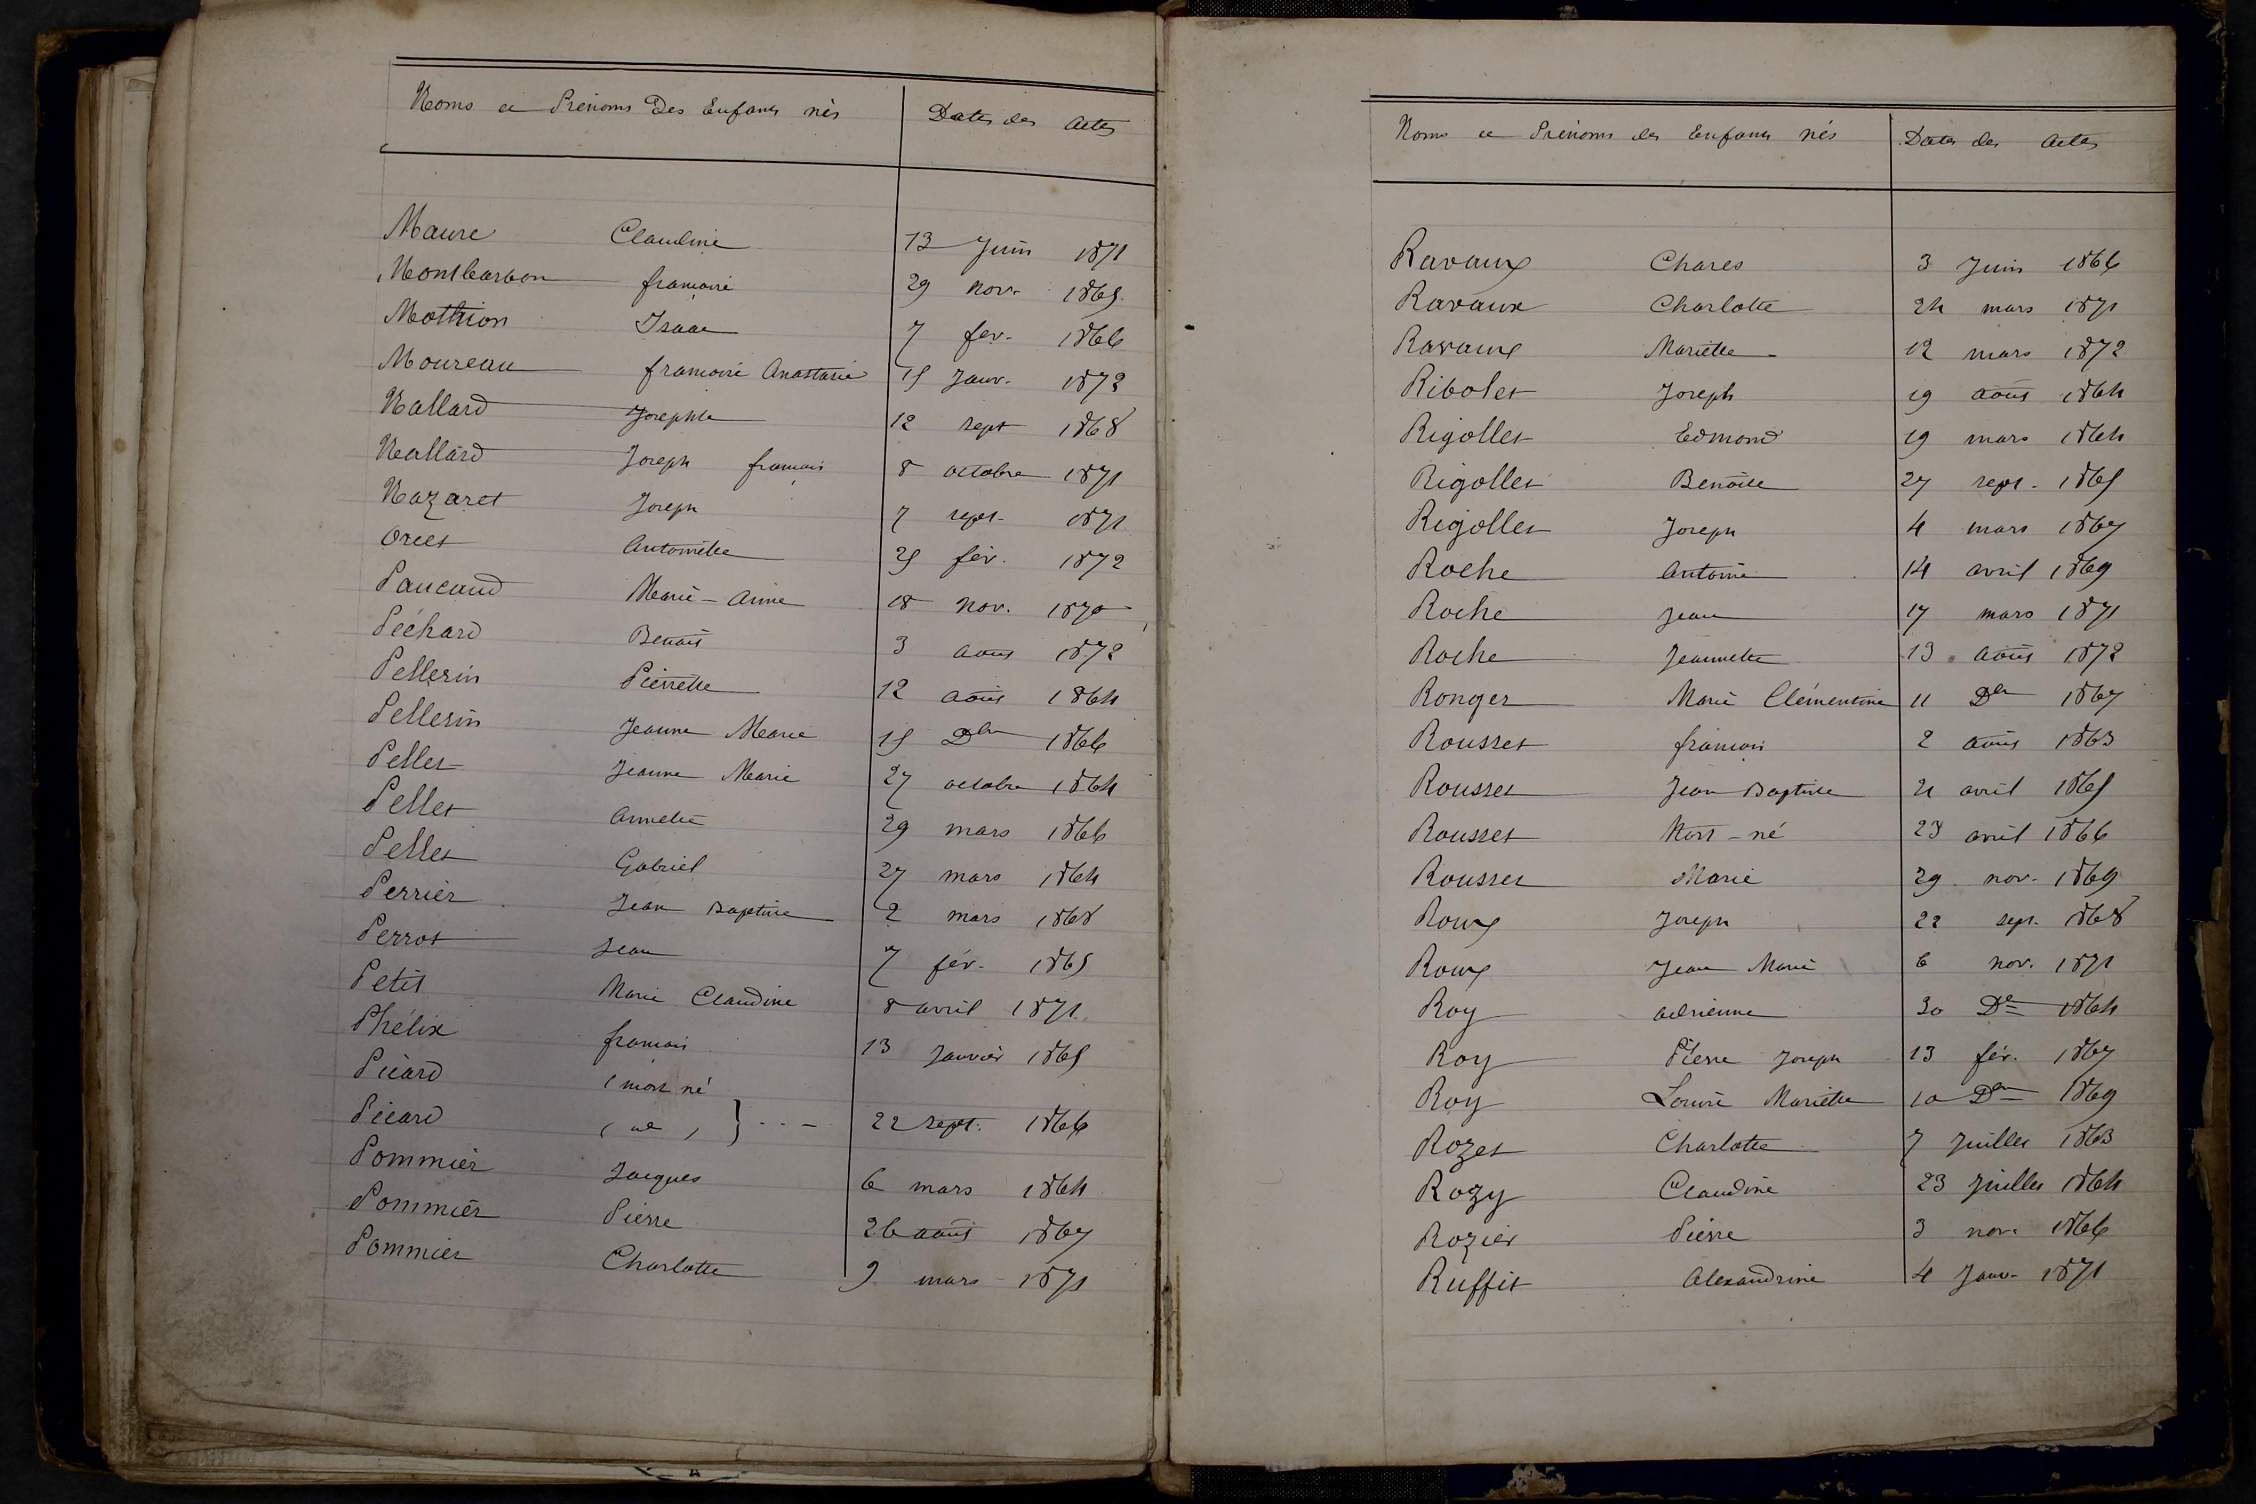 Noms et Prénoms Des Enfants nés Dates des Actes
Maure Claudine 13 Juin 1871
Montbarbon françoise 29 nov. 1865
Mathion Isaac 7 fev. 1866
Moureau françoise Anastasie 15 Janv. 1872
Nallard Josephte 12 sept 1868
Nallard Joseph françois 8 octobre 1871
Nazaret Joseph 7 sept. 1871
Orcet Antoinette 25 fév. 1872
Paucaud Marie-Anne 18 nov. 1870
Péchard Benoit 3 aout 1872
Pellerin Pierrette 12 août 1864
Pellerin Jeanne Marie 15 Dbre 1866
Pellet Jeanne Marie 27 octobre 1864
Pellet Annette 29 mars 1866
Pellet Gabriel 27 mars 1864
Perrier Jean Baptiste 2 mars 1868
Perrot Jean 7 fév. 1865
Petit Marie Claudine 8 avril 1871
Phélix françois 13 Janvier 1865
Picard (mort né
Picard ( id ) } - - - 22 sept. 1866
Pommier Jacques 6 mars 1864
Pommier Pierre 26 août 1867
Pommier Charlotte 9 mars 1871
Noms et Prénoms des Enfants nés Dates des Actes
Ravaux Chares 3 Juin 1866
Ravaux Charlotte 24 mars 1871
Ravaux Mariette 12 mars 1872
Ribolet Joseph 19 août 1864
Rigollet Edmond 19 mars 1864
Rigollet Benoite 27 sept. 1865
Rigollet Joseph 4 mars 1867
Roche Antoine 14 avril 1869
Roche Jean 17 mars 1871
Roche Jeannette 13 août 1872
Ronger Marie Clémentine 11 Dbre 1867
Rousset françois 2 août 1863
Rousset Jean Baptiste 21 avril 1865
Rousset Mort-né 23 avril 1866
Rousset Marie 29 nov. 1869
Roux Joseph 22 sept. 1868
Roux Jean Marie 6 nov. 1871
Roy adrienne 30 Dbre 1864
Roy Pierre Joseph 13 fév. 1867
Roy Louise Mariette 10 Dbre 1869
Rozet Charlotte 7 Juillet 1863
Rozy Claudine 23 Juillet 1864
Rozier Pierre 3 nov. 1866
Ruffit Alexandrine 4 Janv. 1871